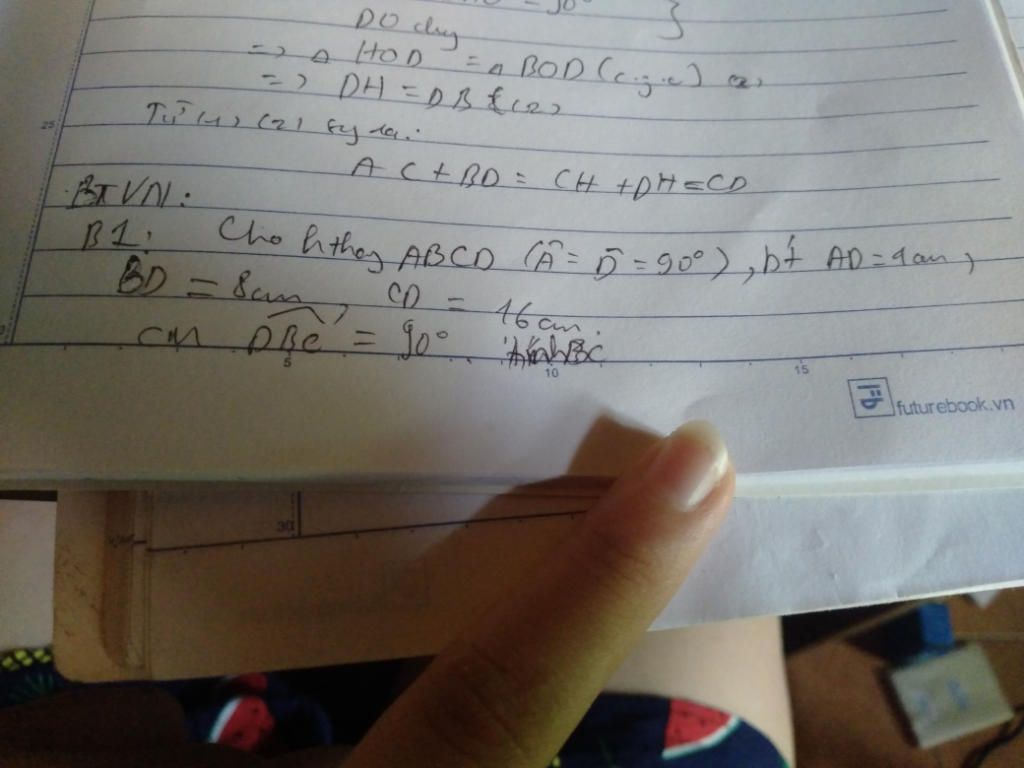 = 90° }
DO chy
=> △ HOD = △ BOD (c.g.c)
=> DH = DB (2)
Từ (1) (2) suy ra:
AC + BD = CH + DH = CD
BTVN:
B1: Cho hthang ABCD (Â = D̂ = 90°), bt AD = 4cm,
BD = 8cm, CD = 16cm.
CM DBC = 90°
25
5
10
15
futurebook.vn
30